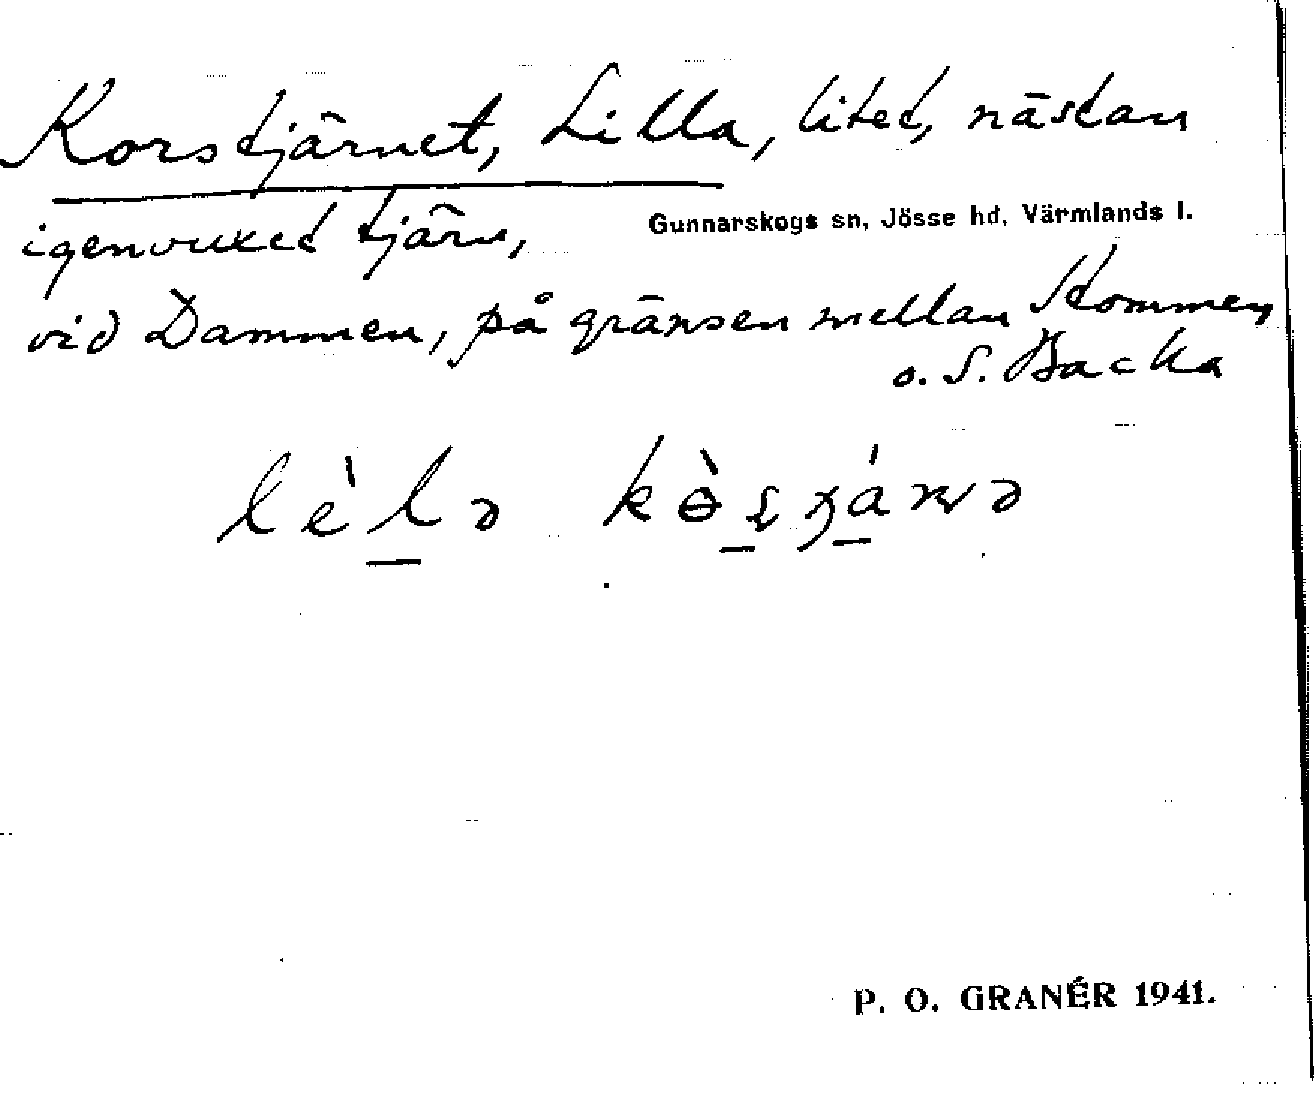 Korstjärnet, Lilla, litet, nästan
igenvuxet tjärn,
Gunnarskogs sn, Jösse hd, Värmlands l.
vid Dammen, på gränsen mellan Stommen
o. S. Backa
P. O. GRANÉR 1941.